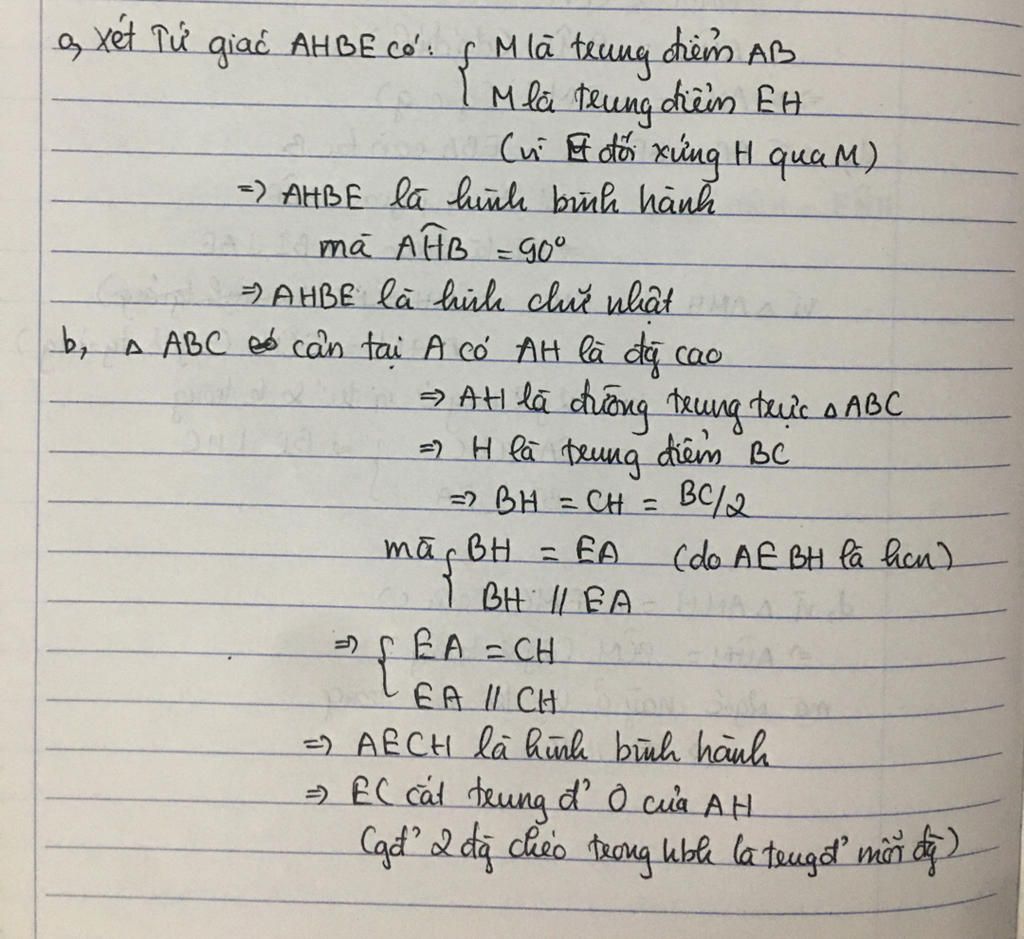 a, Xét Tứ giác AHBE có: { M là trung điểm AB
M là trung điểm EH
(vì E đối xứng H qua M)
=> AHBE là hình bình hành
mà AĤB = 90°
=> AHBE là hình chữ nhật
b, △ ABC cân tại A có AH là đg cao
=> AH là đường trung trực △ ABC
=> H là trung điểm BC
=> BH = CH = BC/2
mà { BH = EA (do AEBH là hcn)
BH // EA
=> { EA = CH
EA // CH
=> AECH là hình bình hành
=> EC cắt trung đ' O của AH
(gđ' 2 đg chéo trong hbh là trugđ' mỗi đg)